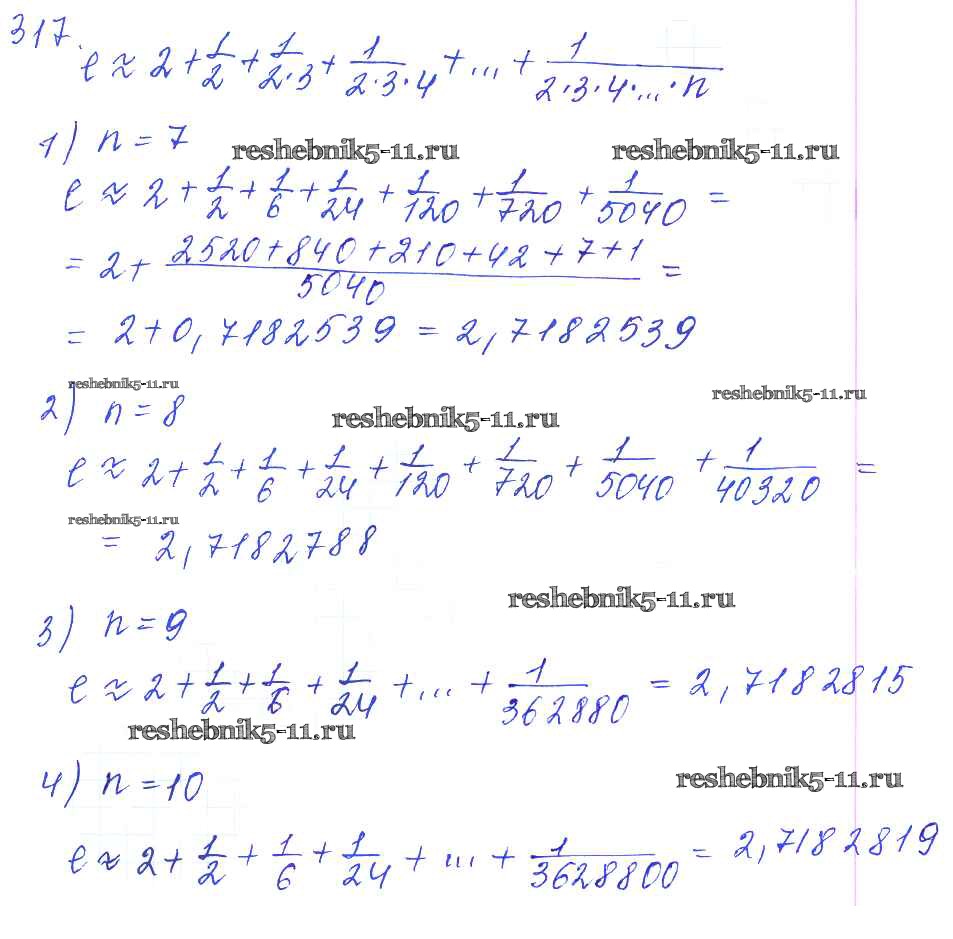 317.
e ≈ 2 + 1/2 + 1/(2·3) + 1/(2·3·4) + ... + 1/(2·3·4·...·n)
1) n = 7
reshebnik5-11.ru reshebnik5-11.ru
e ≈ 2 + 1/2 + 1/6 + 1/24 + 1/120 + 1/720 + 1/5040 =
= 2 + (2520 + 840 + 210 + 42 + 7 + 1)/5040 =
= 2 + 0,7182539 = 2,7182539
reshebnik5-11.ru reshebnik5-11.ru
2) n = 8
reshebnik5-11.ru
e ≈ 2 + 1/2 + 1/6 + 1/24 + 1/120 + 1/720 + 1/5040 + 1/40320 =
reshebnik5-11.ru
= 2,7182788
reshebnik5-11.ru
3) n = 9
e ≈ 2 + 1/2 + 1/6 + 1/24 + ... + 1/362880 = 2,7182815
reshebnik5-11.ru
4) n = 10
reshebnik5-11.ru
e ≈ 2 + 1/2 + 1/6 + 1/24 + ... + 1/3628800 = 2,7182819